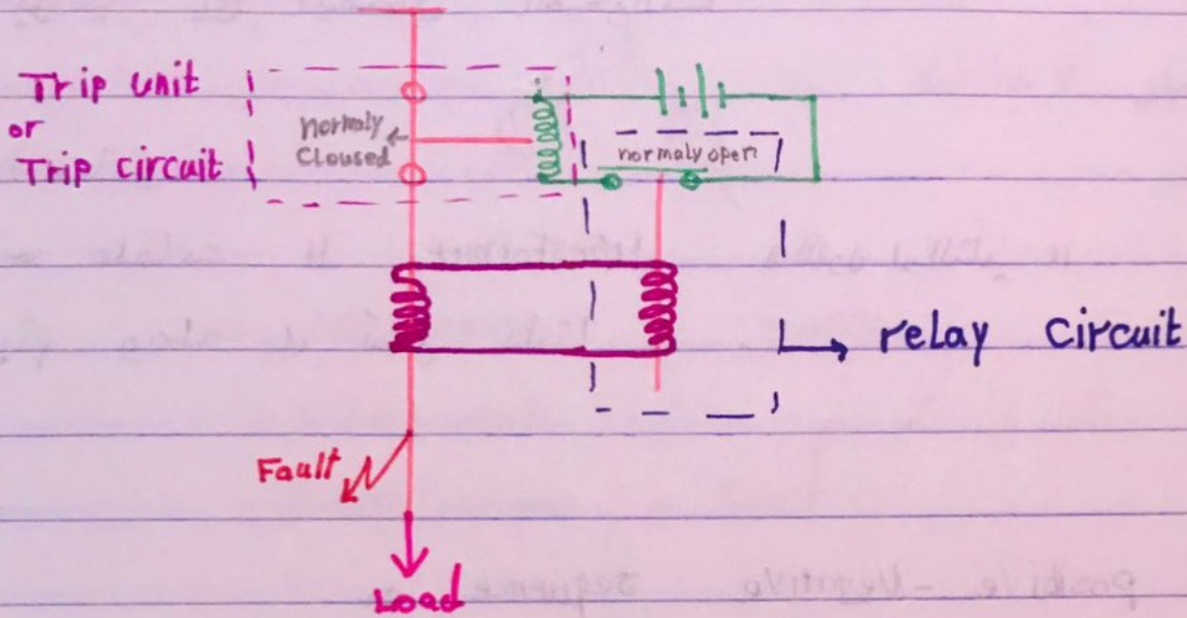 Trip unit
or
Trip circuit
normaly
Cloused
normaly open
relay circuit
Fault
Load